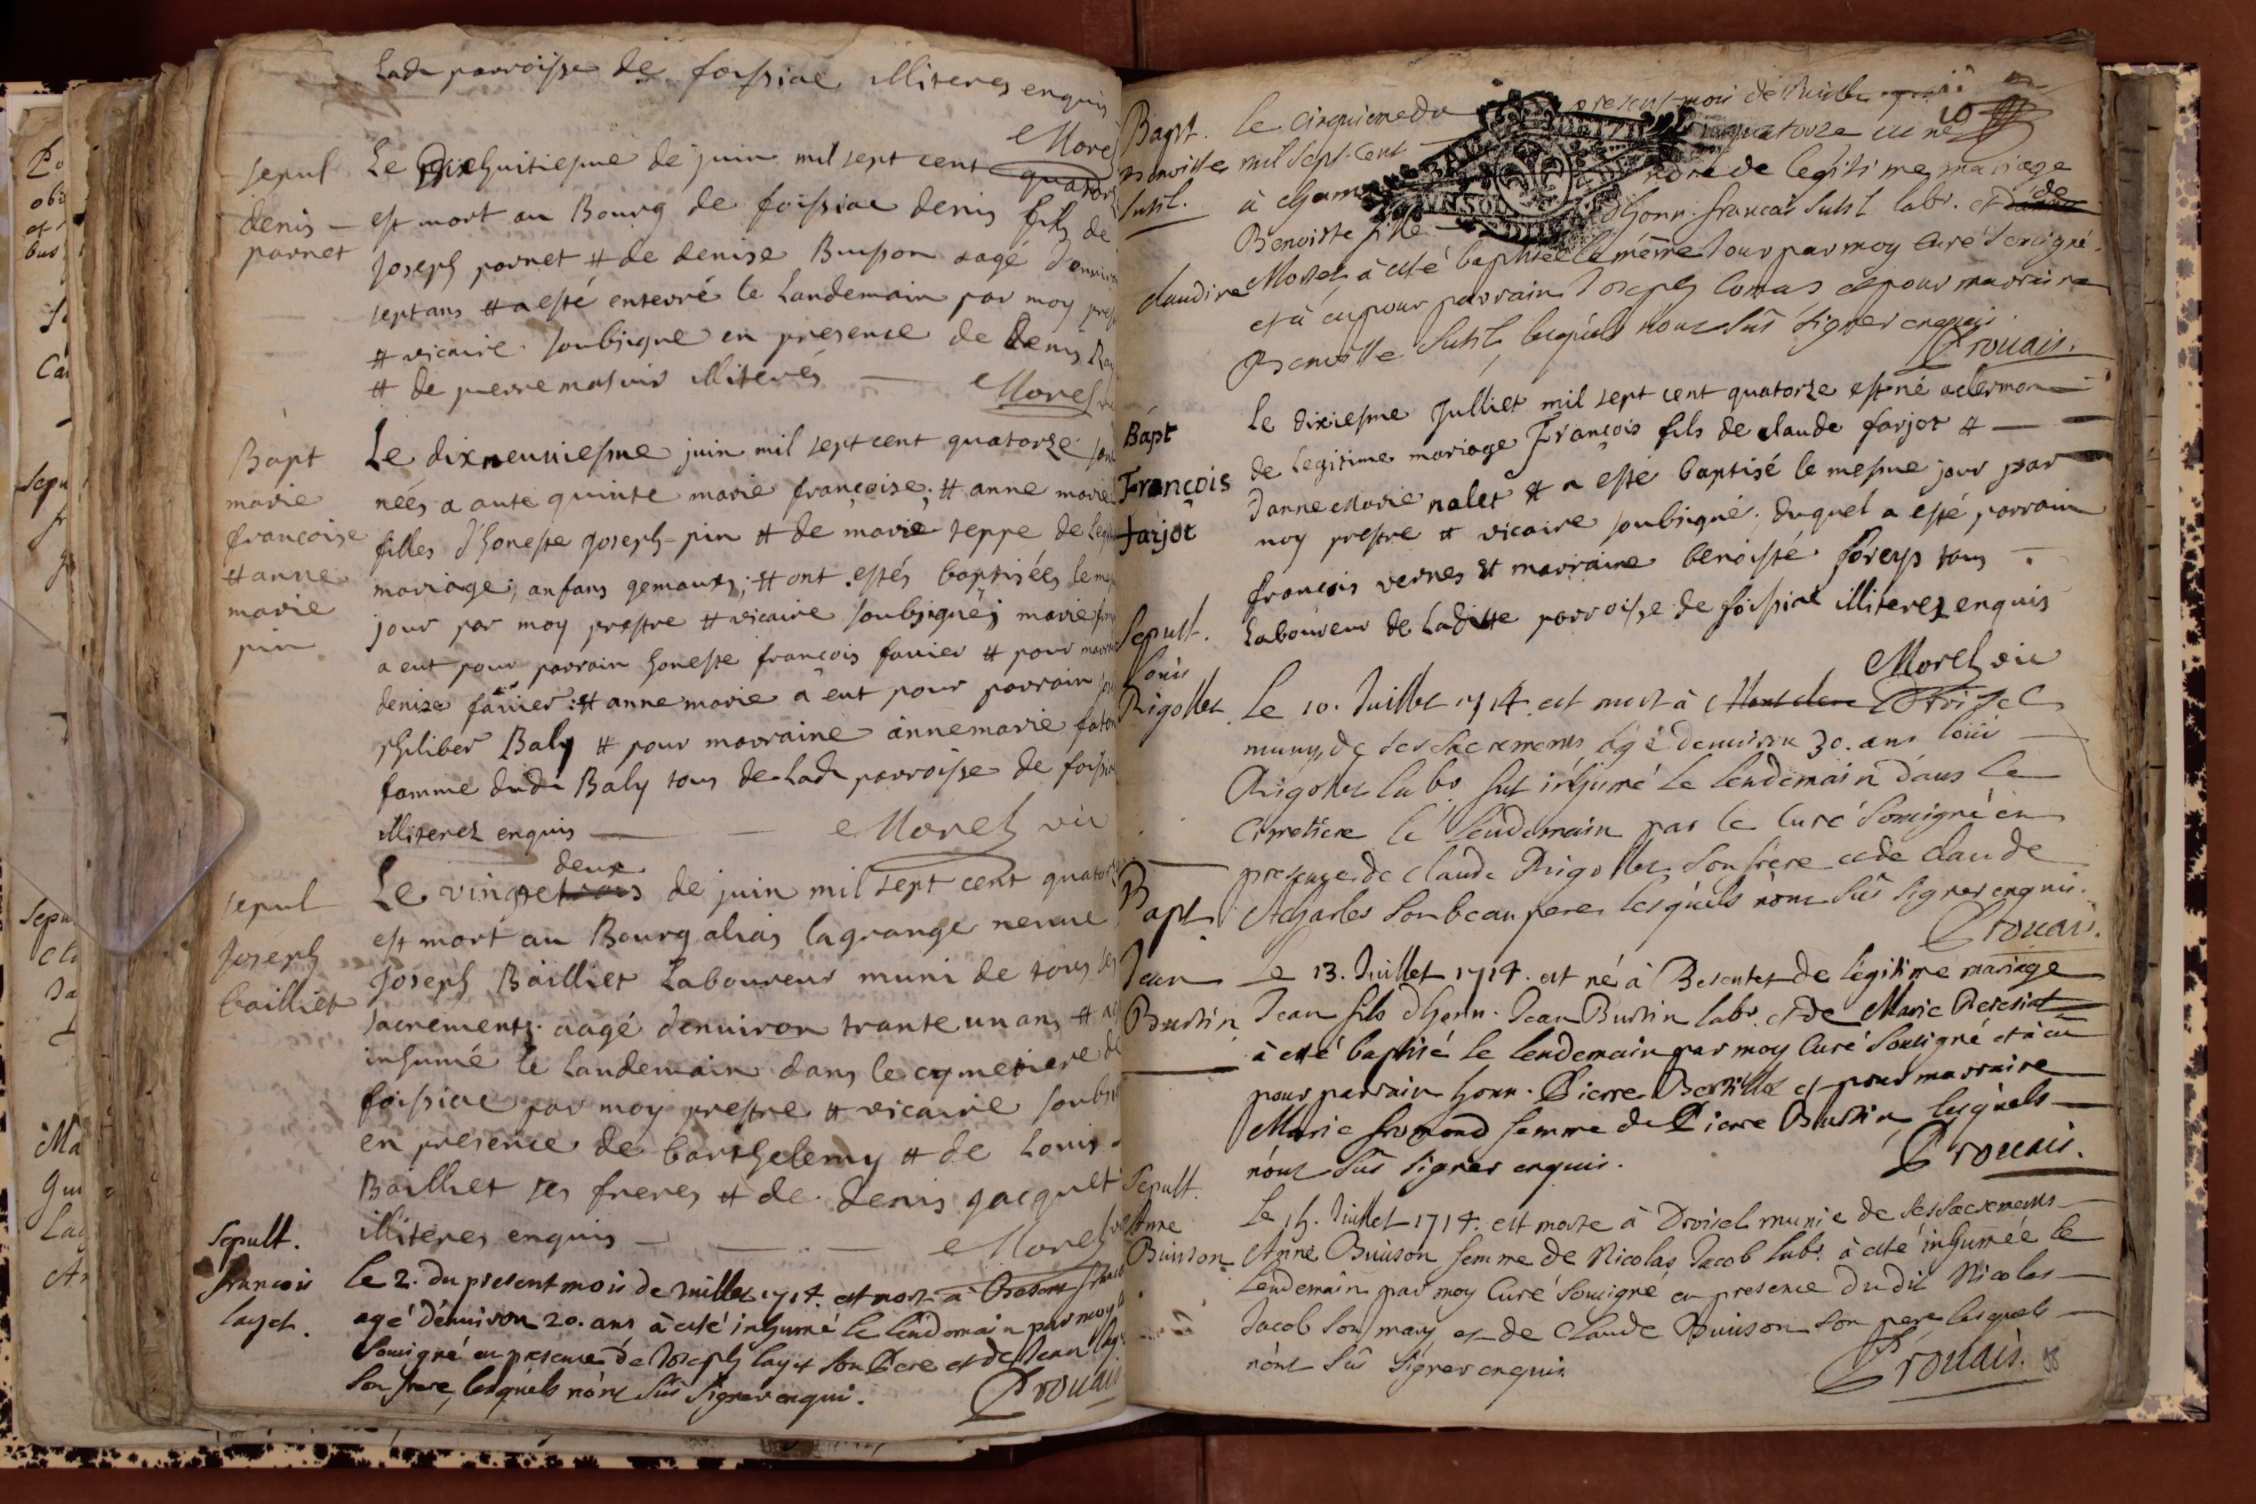 Ladᵉ parroisse de foissiac illiteres enquis
Morel
sepul
denis
parnet
Le Dixhuitiesme de juin mil sept cent quator
est mort au Bourg de foissiac denis fils de
Joseph parnet & de denise Buisson aagé d'enuiron
sept ans & a esté enterré le Landemain par moy pres
& vicaire soubsigne en presence de denis
& de pierre mathuis illiterés
Morel
Bapt
marie
françoise
& anne
marie
pin
Le dixneuuiesme juin mil sept cent quatorze sont
nées a aute quinte marie françoise; & anne marie
filles d'honeste Joseph pin & de marie teppe de Legi
mariage; anfans gemauts; & ont estés baptisées le mes
jour par moy prestre & vicaire soubsigné; marie fran
a eut pour parrain honeste françois fauier & pour marrai
denise fauier: & anne marie a eut pour parrain
philiber Baly & pour marraine annemarie
famme dudᵗ Baly tous de Ladᵉ parroisse de foissia
illiterez enquis Morel vic
sepul
Joseph
bailliet
deux
Le vingt et trois de juin mil sept cent quatorz
est mort au Bourg alias lagrange neuue
Joseph Bailliet Laboureur muni de tous ses
sacrements. aagé denuiron trante un ans & a
inhumé le Landemain dans le cymetiere de
foissiac par moy prestre & vicaire soubsi
en presence de barthelemy & de Louis
Bailliet ses freres & de denis jacquet
illiteres enquis Morel
Sepult.
francois
layet.
le 2. du present mois de Juillet 1714. est mort à
agé d'enuiron 20. ans à été inhumé le lendemain par moy
souigné en presence de Joseph layet son Pere et de Jean lay
son frere, lesquels nónt sûs signer enquis.
Prouais
Bapt.
Benoiste
Sutil.
Le cinquieme du present mois de Juillet
10
mil sept. cent quatorze est né
à de legitime mariage
Benoiste fille d'honn. francois Sutil labr. et de
claudine Morel à esté baptisée le méme Jour par moy Curé souigné.
et à eu pour parrain Joseph Comas et pour marraine
Benoiste Sutil, lesquels nónt sûs signer enquis
Prouais.
Bapt
François
farjot
Le dixiesme Julliet mil sept cent quatorze est né aclermon
de Legitime mariage François fils de claude farjot &
d'anne Marie nalet & a esté baptisé le mesme jour par
moy prestre & vicaire soubsigné. duquel a esté parrain
françois vernes & marraine benoisté foreys tous
Laboureur de Laditte parroisse de foissiat illiterez enquis
Morel vic
Sepult.
Louis
Rigollet
Le 10. Juillet 1714. est mort à
muny de ses sacrements agé denuiron 30. ans loüis
Rigollet labr. fut inhumé le lendemain dans le
Cimetiere le lendemain par le Curé Souigné en
presence de Claude Rigollet son frere et de Claude
Charles son beau pere lesquels nónt sûs signer enquis.
Prouais.
Bapt
Jean
Burtin
Le 13. Juillet 1714. est né à Besentet de légitime mariage
Jean fils d'honn. Jean Burtin labr. et de Marie
à esté baptisé le lendemain par moy Curé souigné et à eu
pour parrain honn. Pierre et pour marraine
Marie fromond femme de Pierre Burtin lesquels
nónt sûs signer enquis.
Prouais.
Sepult.
Anne
Buisson
Le 15. Juillet 1714. est morte à Droisel munie de ses sacrements
Anne Buisson femme de Nicolas Jacob labr. à esté inhumée le
lendemain par moy Curé souigné en presence dudit Nicolas
Jacob son mary et de Claude Buisson son pere lesquels
nónt sûs signer enquis
Prouais.